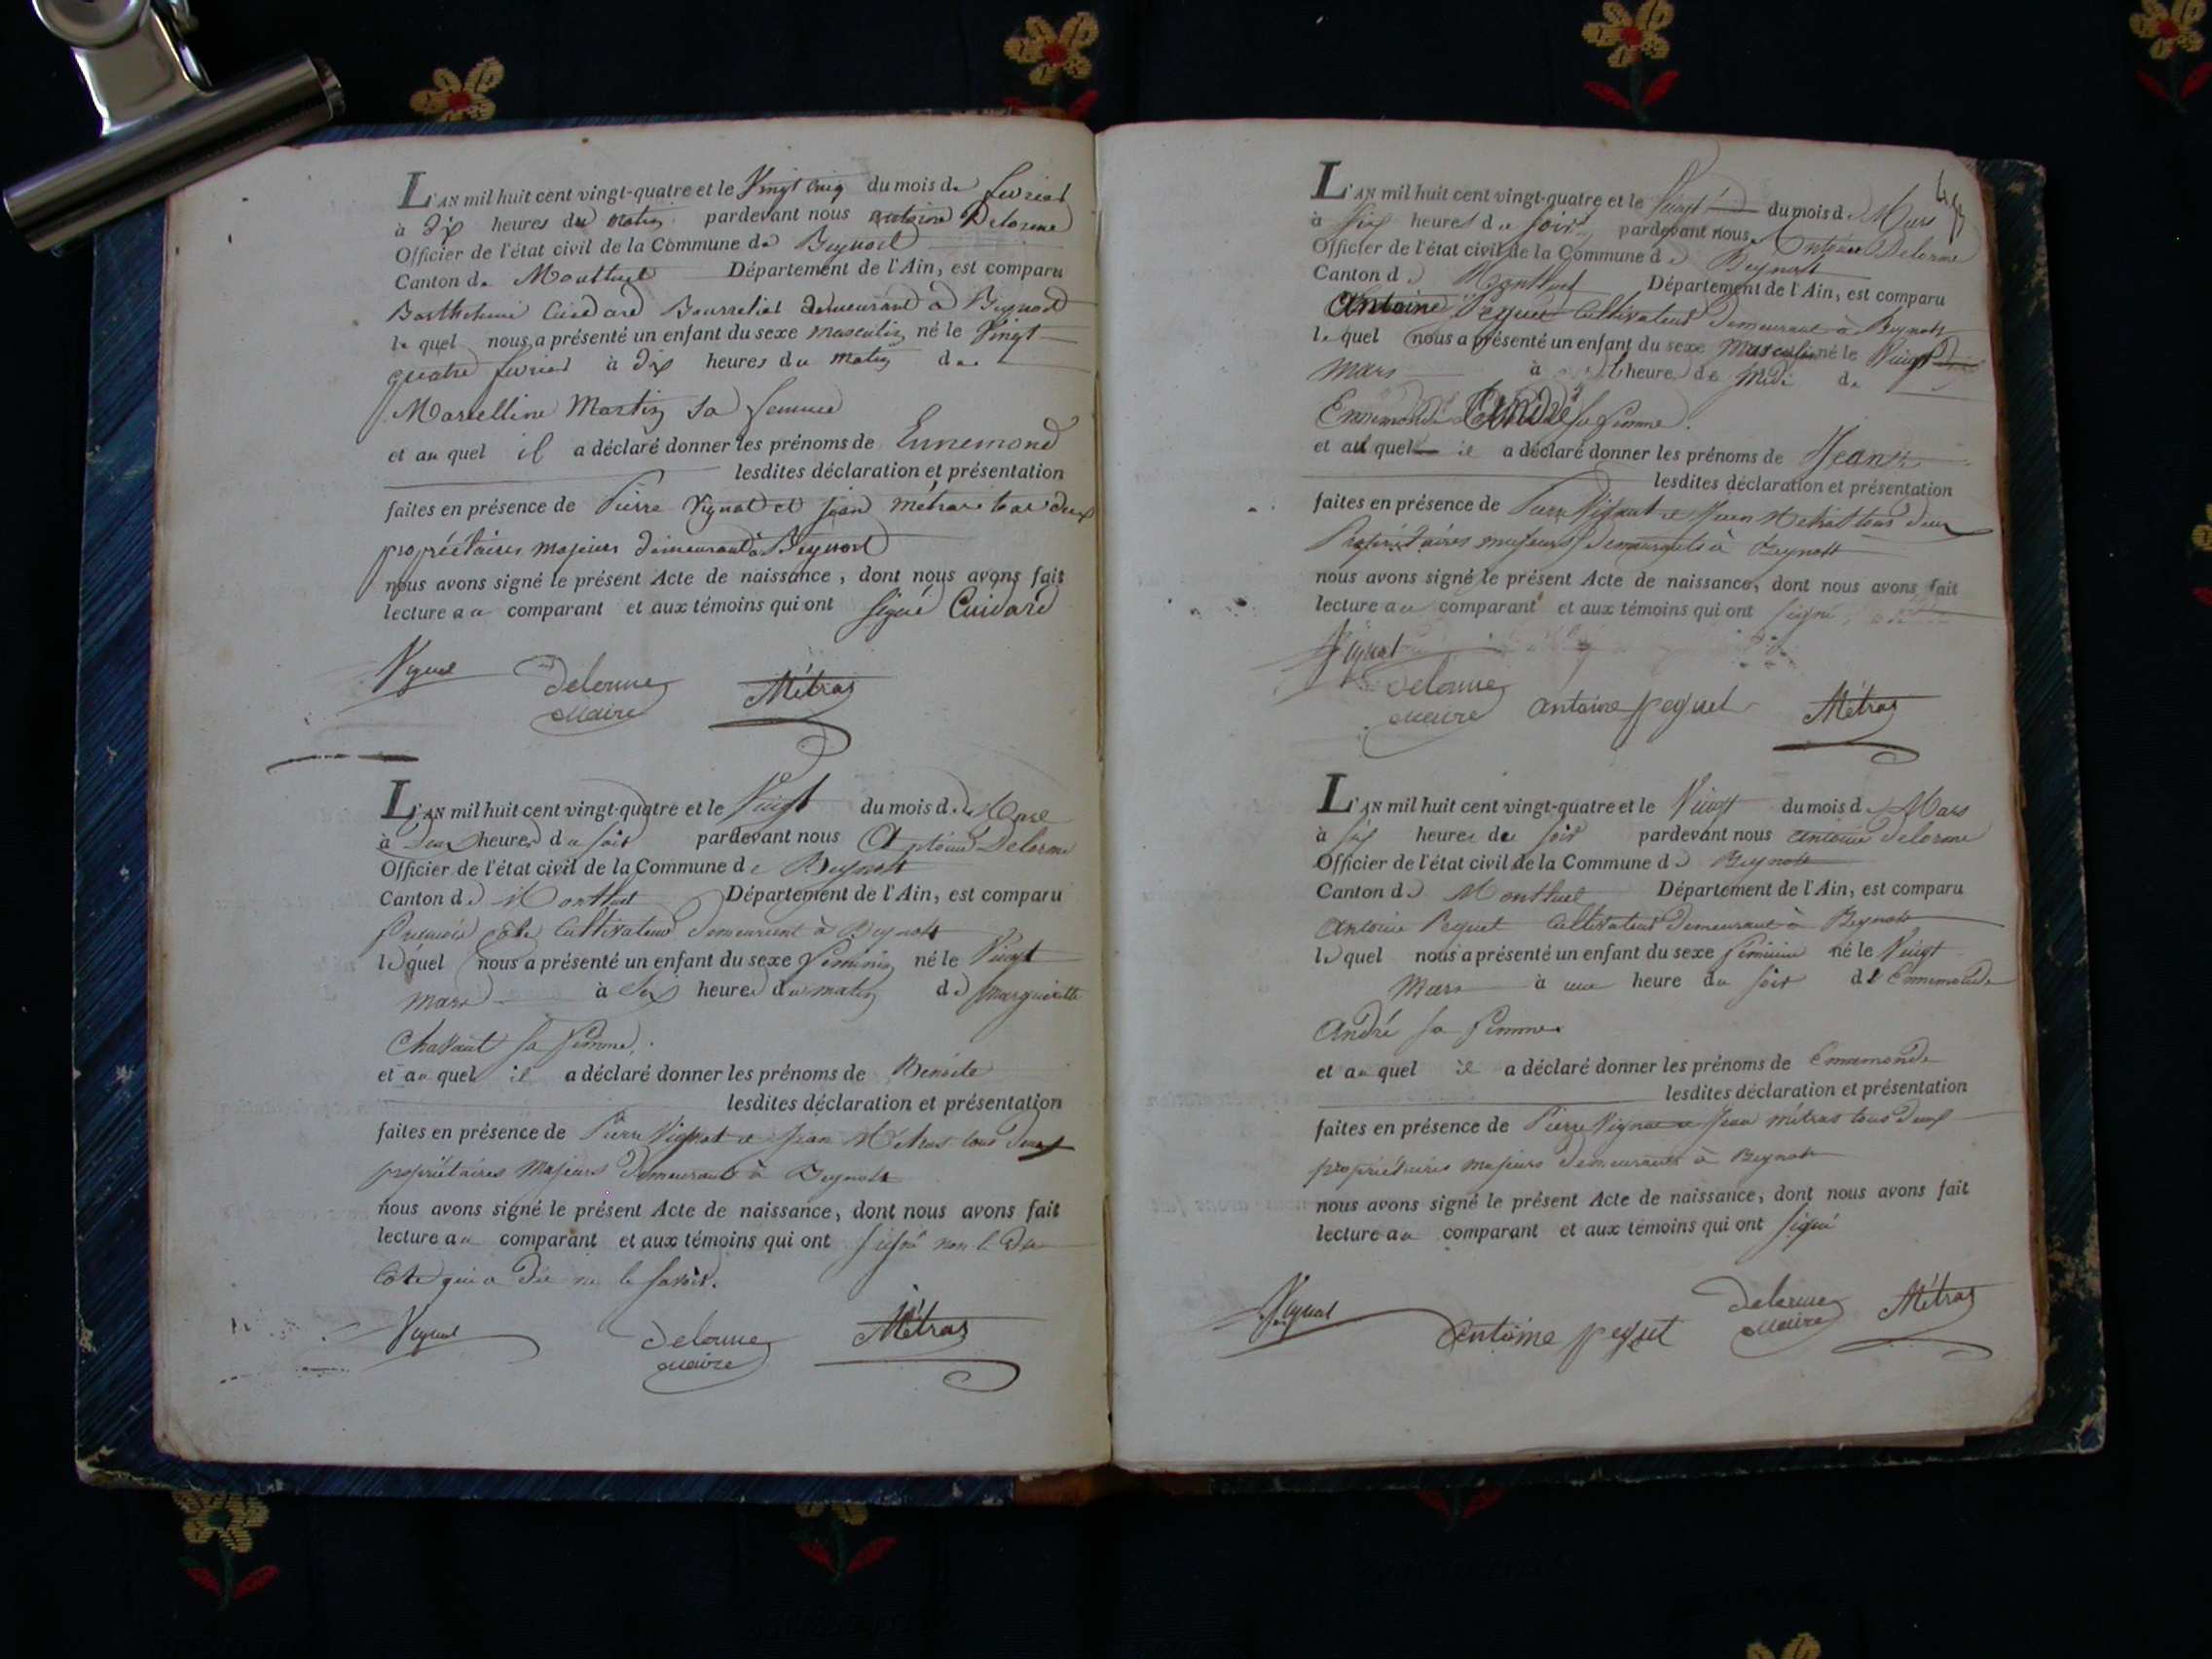 L'AN mil huit cent vingt-quatre et le Vingt cinq du mois de fevrier
à Dix heures du Matin pardevant nous antoine Delorme
Officier de l'état civil de la Commune de Beynost
Canton de Montluel Département de l'Ain, est comparu
Barthelemi Cuidard Bourrelier demeurant à Beynost
le quel nous a présenté un enfant du sexe masculin né le Vingt
quatre fevrier à Dix heures du matin de
Marcelline Martin sa femme
et au quel il a déclaré donner les prénoms de Ennemond
lesdites déclaration et présentation
faites en présence de Pierre Vignat et jean métras tous deux
propriétaires majeurs demeurant à Beynost
nous avons signé le présent Acte de naissance, dont nous avons fait
lecture au comparant et aux témoins qui ont signé Cuidard
Vignat Delorme Métras
Maire
L'AN mil huit cent vingt-quatre et le Vingt du mois de Mars
à Deux heures du soir pardevant nous Antoine Delorme
Officier de l'état civil de la Commune de Beynost
Canton de Montluel Département de l'Ain, est comparu
Cote Cultivateur demeurant à Beynost
le quel nous a présenté un enfant du sexe feminin né le Vingt
Mars à Six heures du matin de Margueritte
Chavant sa femme.
et au quel il a déclaré donner les prénoms de Benoite
lesdites déclaration et présentation
faites en présence de Pierre Vignat et Jean Métras tous deux
propriétaires Majeurs demeurants à Beynost
nous avons signé le présent Acte de naissance, dont nous avons fait
lecture au comparant et aux témoins qui ont signé non le dit
Cote qui a dit ne le savoir.
Vignat Delorme Métras
Maire
L'AN mil huit cent vingt-quatre et le Vingt du mois de Mars
à Six heures du soir pardevant nous Antoine Delorme
Officier de l'état civil de la Commune de Beynost
Canton de Montluel Département de l'Ain, est comparu
Antoine Pequet Cultivateur demeurant à Beynost
le quel nous a présenté un enfant du sexe Masculin né le Vingt
Mars à l'heure de Midi de
Ennemonde André sa femme.
et au quel il a déclaré donner les prénoms de Jean
lesdites déclaration et présentation
faites en présence de Pierre Vignat et Jean Métras tous deux
Propriétaires majeurs demeurants à Beynost
nous avons signé le présent Acte de naissance, dont nous avons fait
lecture au comparant et aux témoins qui ont signé
Vignat
Delorme
Maire antoine pequet Métras
L'AN mil huit cent vingt-quatre et le Vingt du mois de Mars
à six heures du soir pardevant nous antoine delorme
Officier de l'état civil de la Commune de Beynost
Canton de Montluel Département de l'Ain, est comparu
antoine Pequet Cultivateur demeurant à Beynost
le quel nous a présenté un enfant du sexe feminin né le Vingt
Mars à une heure du soir de Ennemonde
André sa femme
et au quel il a déclaré donner les prénoms de Ennemonde
lesdites déclaration et présentation
faites en présence de Pierre Vignat et Jean métras tous deux
propriétaires majeurs demeurants à Beynost
nous avons signé le présent Acte de naissance, dont nous avons fait
lecture au comparant et aux témoins qui ont signé
Vignat antoine pequet Delorme Métras
Maire